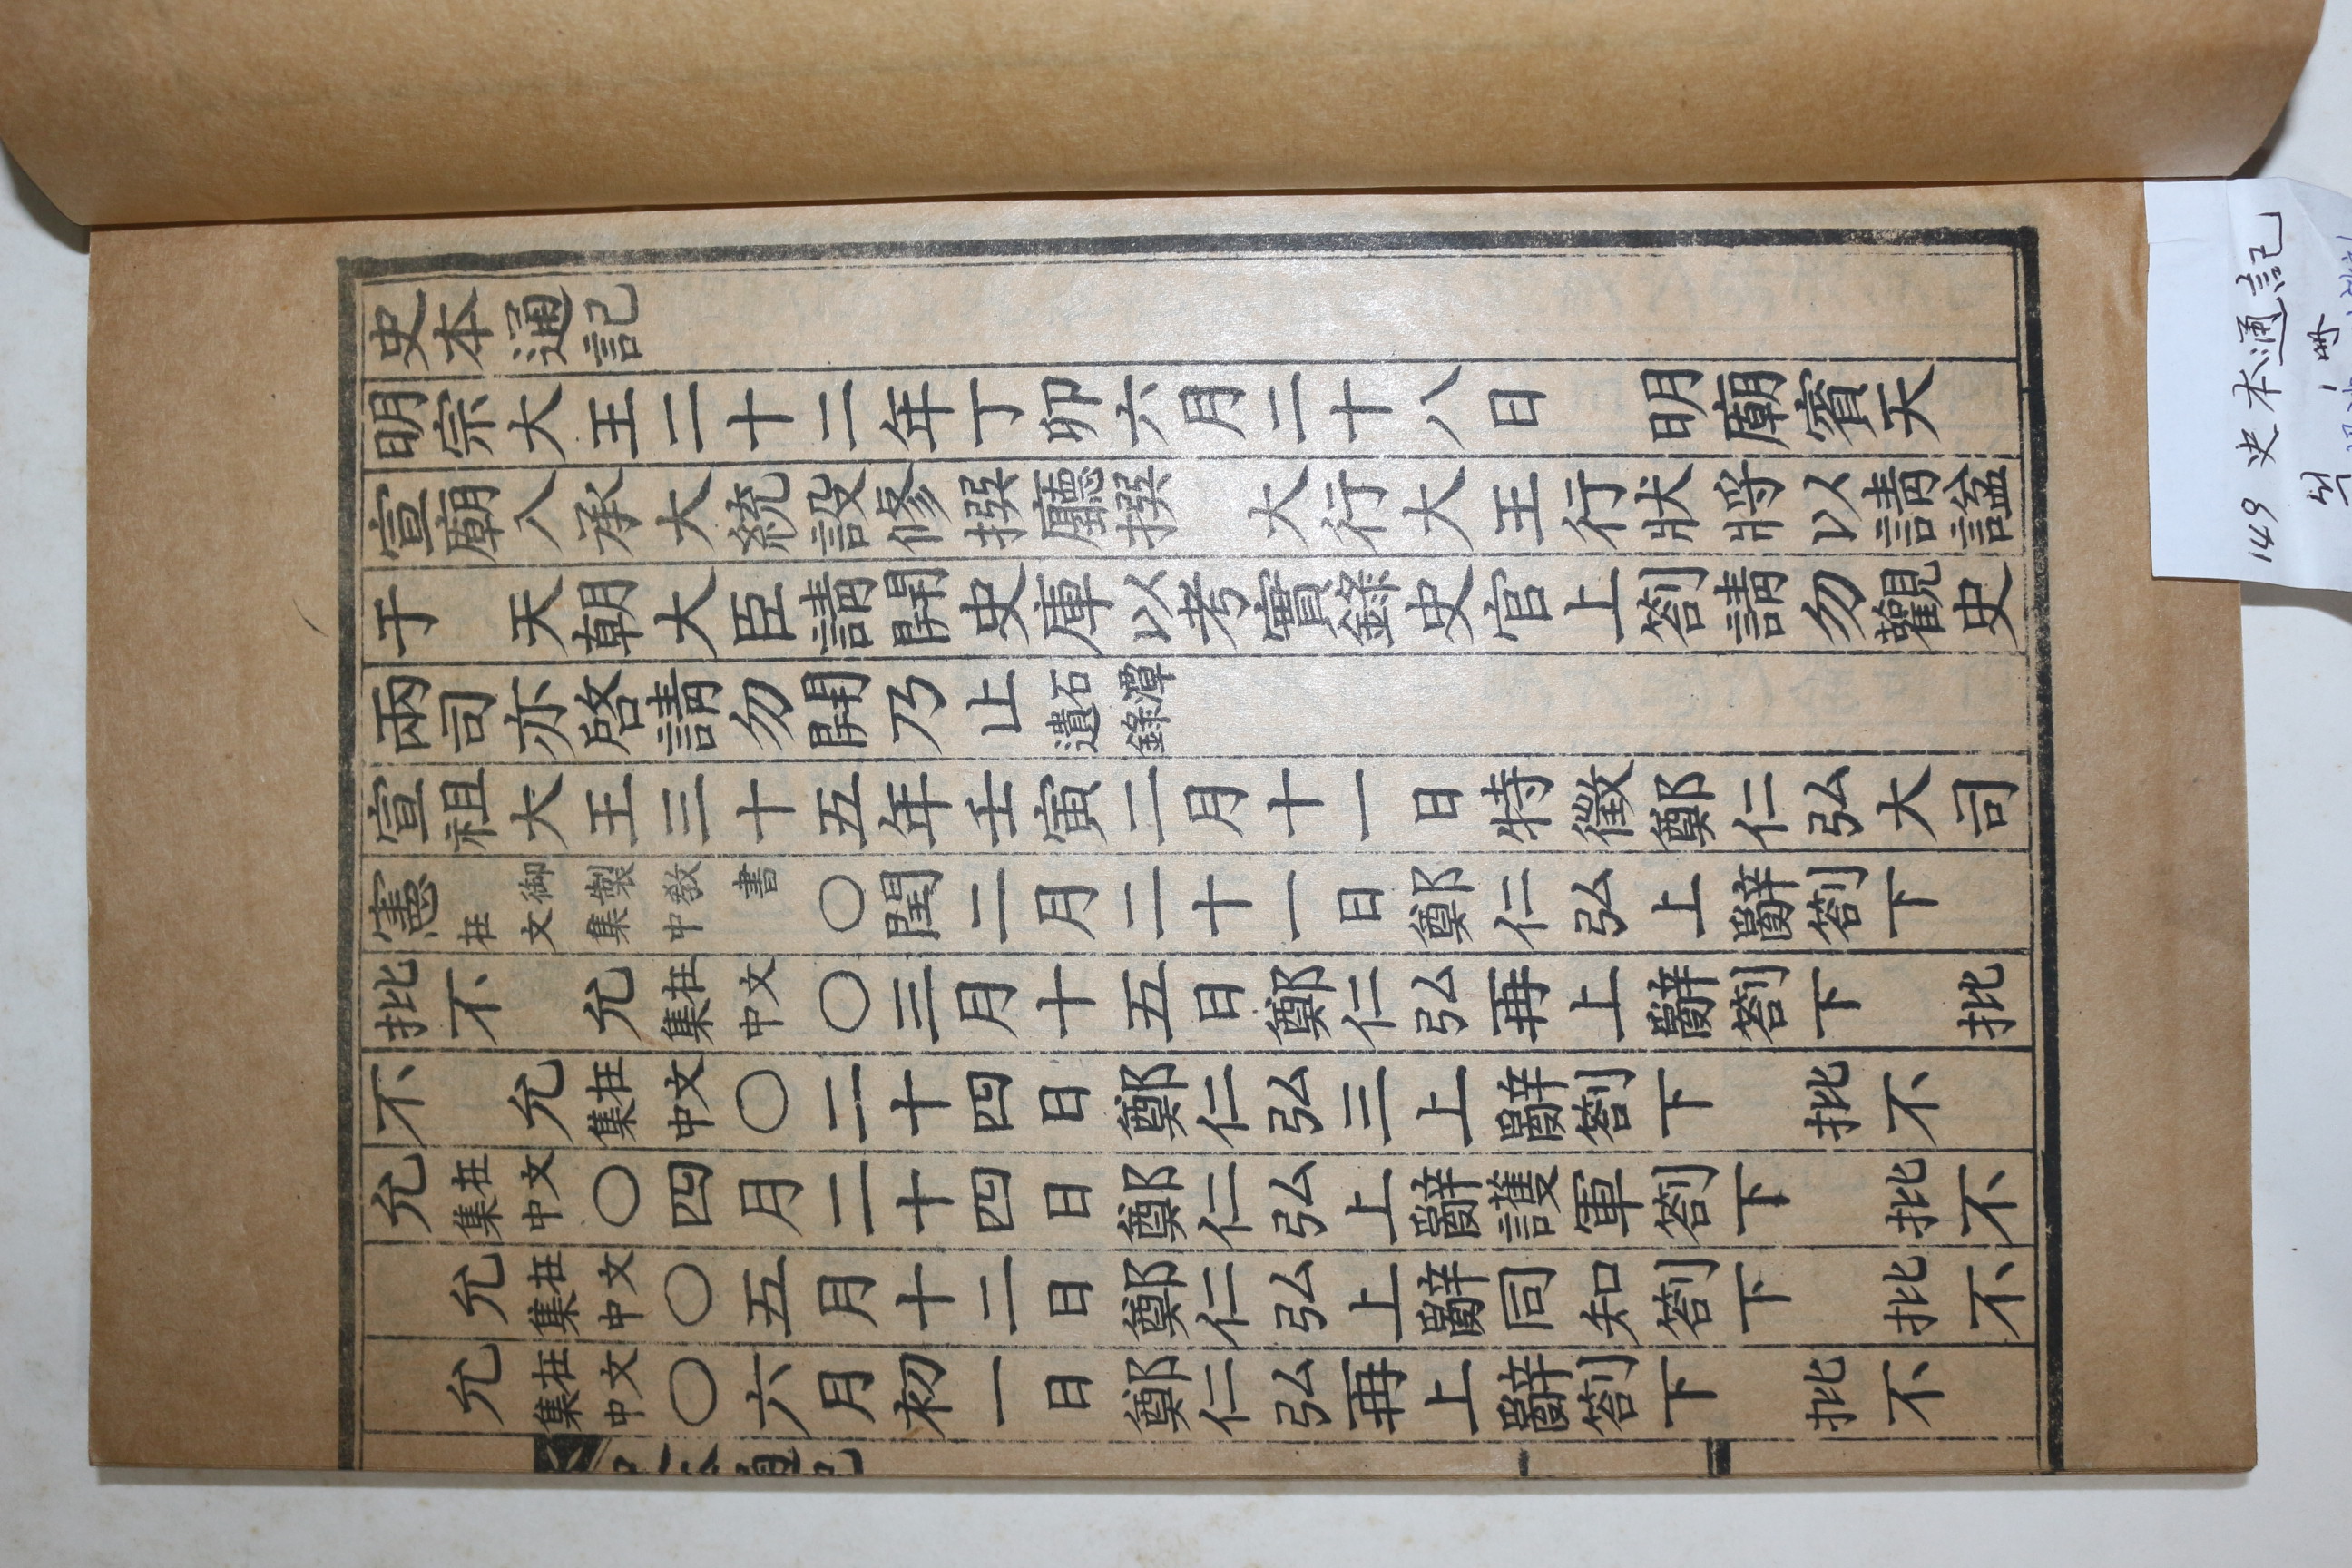 史本通記
明宗大王二十二年丁卯六月二十八日　明廟賓天
宣廟入承大統設修撰廳撰　大行大王行狀將以請諡
于　天朝大臣請開史庫以考實錄史官上劄請勿觀史
兩司亦啓請勿開乃止石潭遺錄
宣祖大王三十五年壬寅二月十一日特徵鄭仁弘大司
憲御製敎書在文集中〇閏二月二十一日鄭仁弘上辭劄下
批不　允在文集中〇三月十五日鄭仁弘再上辭劄下　批
不　允在文集中〇二十四日鄭仁弘三上辭劄下　批不
允在文集中〇四月二十四日鄭仁弘上辭護軍劄下　批不
允在文集中〇五月十二日鄭仁弘上辭同知劄下　批不
允在文集中〇六月初一日鄭仁弘再上辭劄下　批不
149 史本通記
1冊